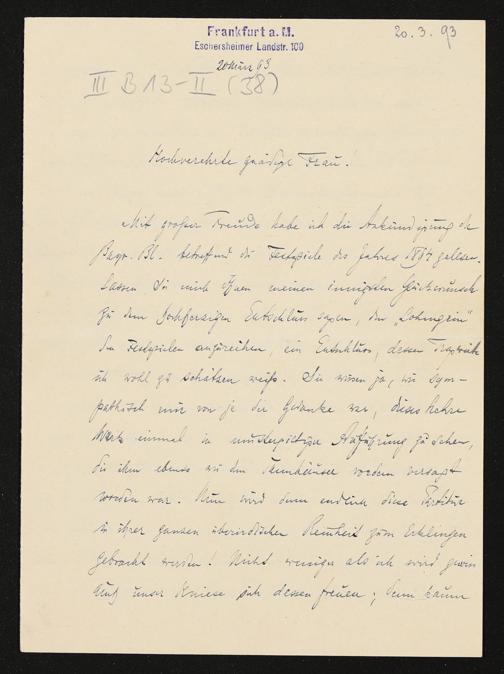 Frankfurt a. M.
Eschersheimer Landstr. 100
20. 3. 93
20 März 93
III B 13 - II (38)
Hochverehrte gnädige Frau!
Mit großer Freude habe ich die Ankündigung der
Bayr. Bl. betreffend die Festspiele des Jahres 1894 gelesen.
Lassen Sie mich Ihnen meinen innigsten Glückwunsch
zu dem hochherzigen Entschluss sagen, den „Lohengrin“
den Festspielen anzureihen, ein Entschluss, dessen Tragweite
ich wohl zu schätzen weiß. Sie wissen ja, wie sym-
pathisch mir von je der Gedanke war, dieses hehre
Werk einmal in mustergiltiger Aufführung zu sehen,
die ihm ebenso wie dem Tannhäuser vordem versagt
worden war. Nun wird denn endlich diese Partitur
in ihrer ganzen überirdischen Reinheit zum Erklingen
gebracht werden! Nicht weniger als ich wird gewiss
auch unser Kniese sich dessen freuen; denn kaum